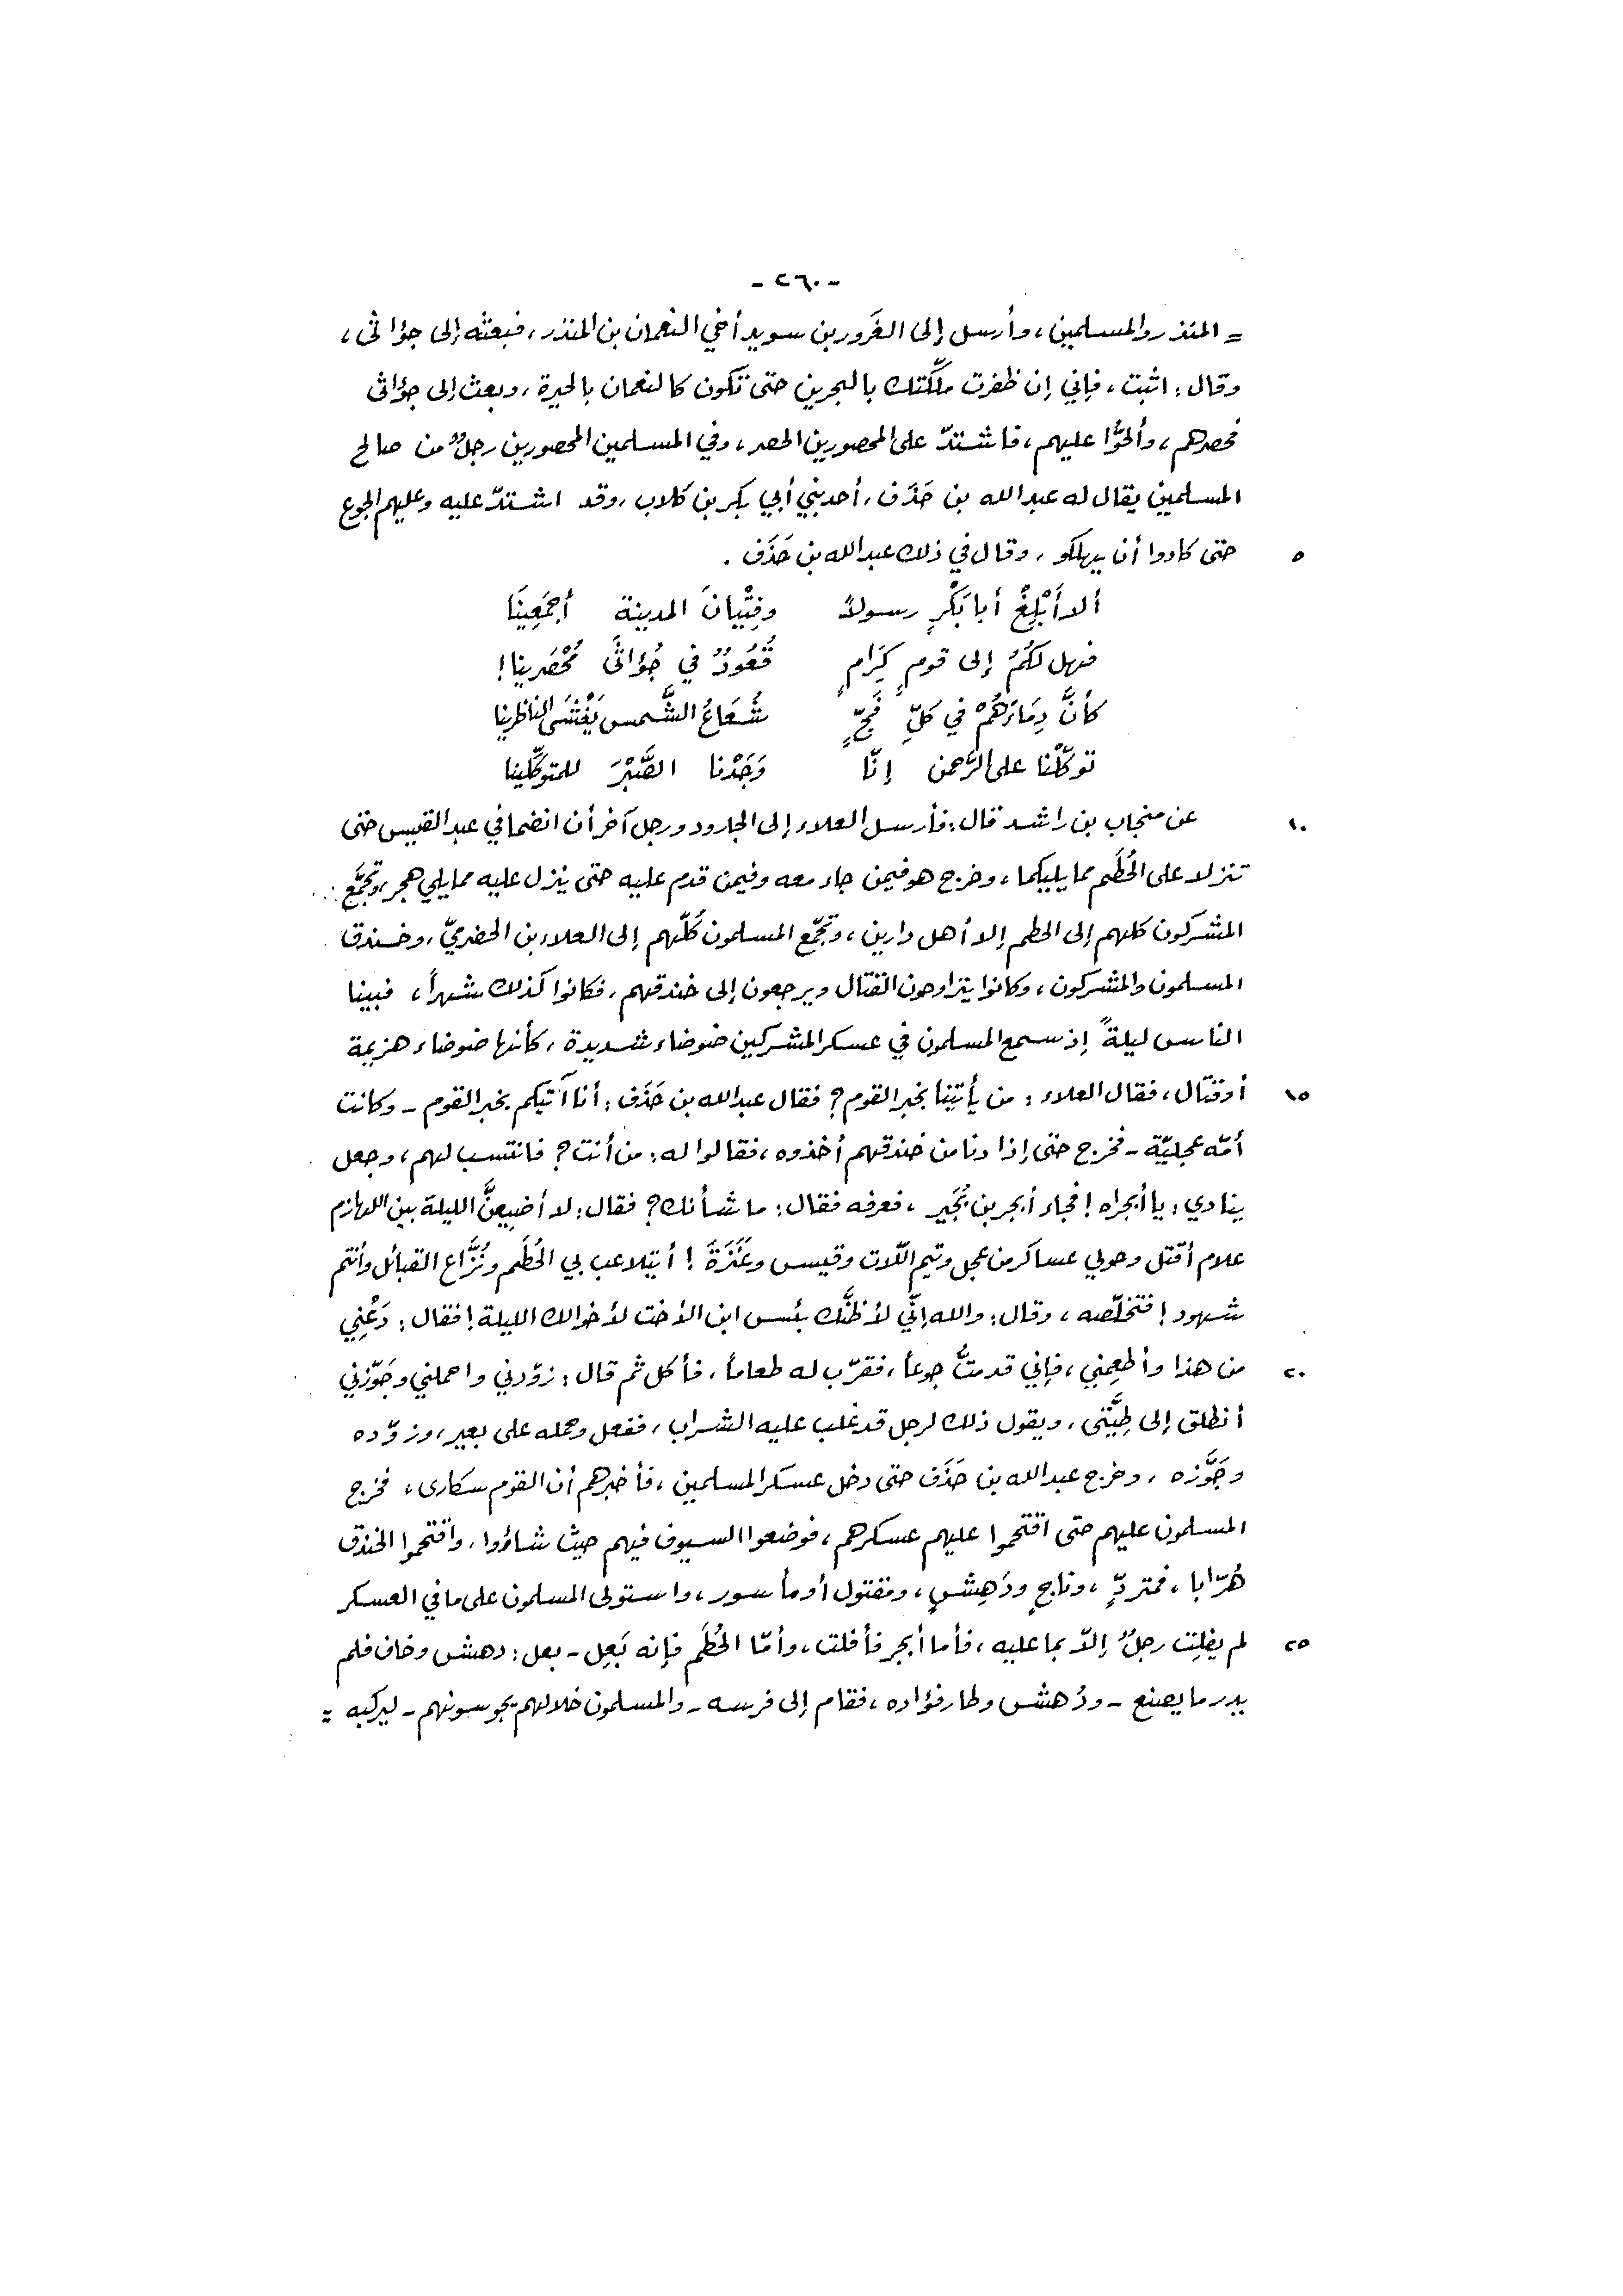 - ٢٦٠ -
= المنذر والمسلمين، وأرسل إلى الغَرور بن سويد أخي النعمان بن المنذر، فبعثه إلى جؤاثى،
وقال: اثبت، فإني إن ظفرت ملّكتك بالبحرين حتى تكون كالنعمان بالحيرة، وبعث إلى جؤاثى
فحصرهم، وألحُّوا عليهم، فاشتدّ على المحصورين الحصر، وفي المسلمين المحصورين رجلٌ من صالح
المسلمين يقال له عبد الله بن حَذَف، أحد بني أبي بكر بن كلاب، وقد اشتدّ عليه وعليهم الجوع
٥ حتى كادوا أن يهلكو، وقال في ذلك عبد الله بن حَذَف.
ألا أَبْلِغْ أبا بَكْرٍ رسولاً وفِتْيانَ المدينة أجمَعِينَا
فهل لكُمُ إلى قومٍ كِرَامٍ قُعُودٌ في جُؤاثَى مُحْصَرينا!
كأنَّ دِمَاءَهُمْ في كلِّ فَجٍّ شُعَاعُ الشَّمس يَغْشَى الناظرينا
توكّلْنا على الرّحمن إنّا وَجَدْنا الصَّبْرَ للمتوكّلينا
١٠ عن منجاب بن راشد قال: فأرسل العلاء إلى الجارود ورجل آخر أن انضما في عبد القيس حتى
تنزلا على الحُطَم مما يليكما، وخرج هو فيمن جاء معه وفيمن قدم عليه حتى ينزل عليه مما يلي هجر، وتجمَّع
المشركون كلهم إلى الحطم إلا أهل دارين، وتجمّع المسلمون كُلّهم إلى العلاء بن الحضرميّ، وخندق
المسلمون والمشركون، وكانوا يتراوحون القتال ويرجعون إلى خندقهم، فكانوا كذلك شهراً، فبينا
الناس ليلةً إذ سمع المسلمون في عسكر المشركين ضوضاء شديدة، كأنها ضوضاء هزيمة
١٥ أو قتال، فقال العلاء: من يأتينا بخبر القوم؟ فقال عبد الله بن حَذَف: أنا آتيكم بخبر القوم - وكانت
أمّه عجليّة - فخرج حتى إذا دنا من خندقهم أخذوه، فقالوا له: من أنت؟ فانتسب لهم، وجعل
ينادي: يا أبجراه! فجاء أبجر بن بُجَير، فعرفه فقال: ما شأنك؟ فقال: لا أضيعنَّ الليلة بين اللهازم
علام أقتل وحولي عساكر من عجل وتيم اللّات وقيس وعَنَزَةَ! أيتلاعب بي الحُطَم ونُزَّاع القبائل وأنتم
شهود! فتخلّصه، وقال: والله إنّي لأظنّك بئس ابن الأخت لأخوالك الليلة! فقال: دَعْنِي
٢٠ من هذا وأطعِمني، فإني قد متُّ جوعاً، فقرّب له طعاماً، فأكل ثم قال: زوّدني واحملني وجَوّزني
أنطلق إلى طِيَّتي، ويقول ذلك لرجل قد غلب عليه الشراب، ففعل وحمله على بعير، وزوّده
وجَوَّزه، وخرج عبد الله بن حَذَف حتى دخل عسكر المسلمين، فأخبرهم أن القوم سكارى، فخرج
المسلمون عليهم حتى اقتحموا عليهم عسكرهم، فوضعوا السيوف فيهم حيث شاؤوا، واقتحموا الخندق
هُرّابا، فمتردٍّ، وناجٍ ودَهِشٍ، ومقتول أو مأسور، واستولى المسلمون على ما في العسكر
٢٥ لم يفلِت رجلٌ إلاّ بما عليه، فأما أبجر فأفلت، وأمّا الحُطَم فإنه بَعِل - بعل: دهش وخاف فلم
يدر ما يصنع - ودُهش وطار فؤاده، فقام إلى فرسه - والمسلمون خلالهم يجوسونهم - ليركبه =